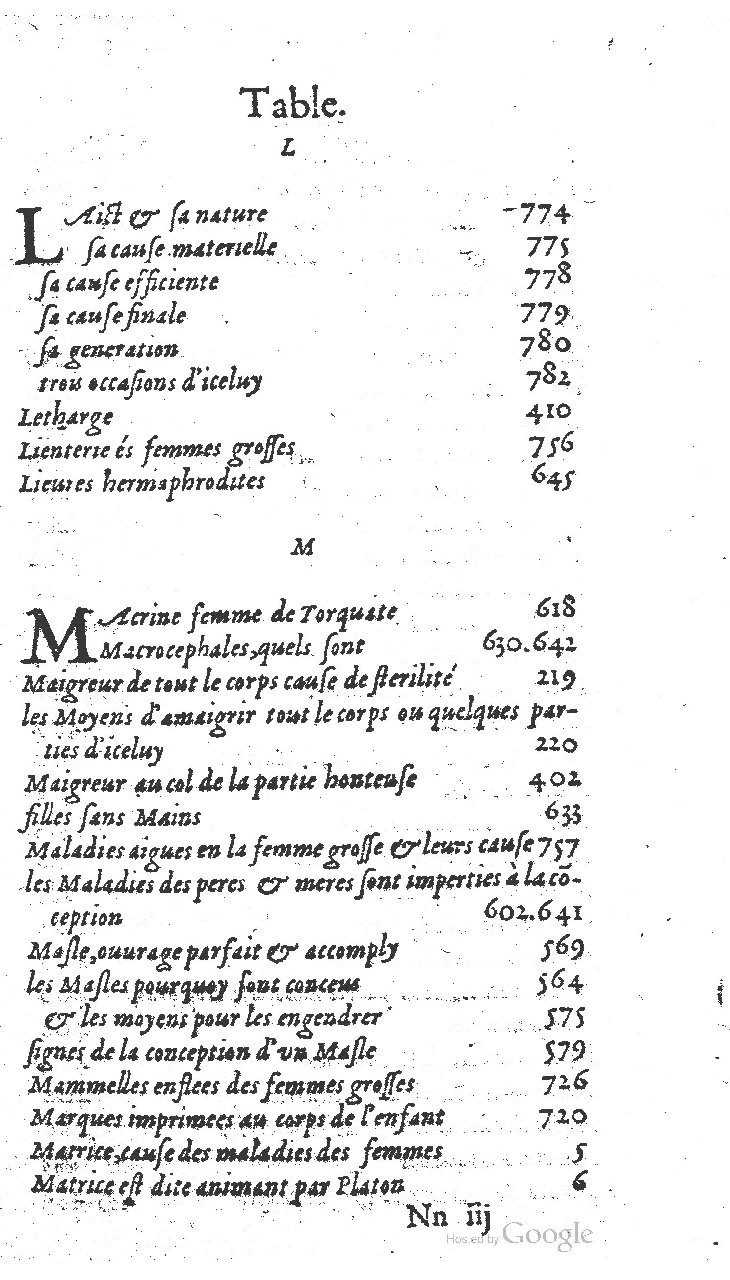 Table.
L
LAict & sa nature 774
sa cause materielle 775
sa cause efficiente 778
sa cause finale 779
sa generation 780
trois occasions d'iceluy 782
Letharge 410
Lienterie és femmes grosses 756
Lieures hermaphrodites 645
M
MAcrine femme de Torquate 618
Macrocephales, quels sont 630.642
Maigreur de tout le corps cause de sterilité 219
les Moyens d'amaigrir tout le corps ou quelques par-
ties d'iceluy 220
Maigreur au col de la partie honteuse 402
filles sans Mains 633
Maladies aigues en la femme grosse & leurs cause 757
les Maladies des peres & meres sont imperties à la cõ-
ception 602.641
Masle, ouurage parfait & accomply 569
les Masles pourquoy sont conceus 564
& les moyens pour les engendrer 575
signes de la conception d'un Masle 579
Mammelles enflees des femmes grosses 726
Marques imprimees au corps de l'enfant 720
Matrice, cause des maladies des femmes 5
Matrice est dite animant par Platon 6
Nn iij
Hosted by Google